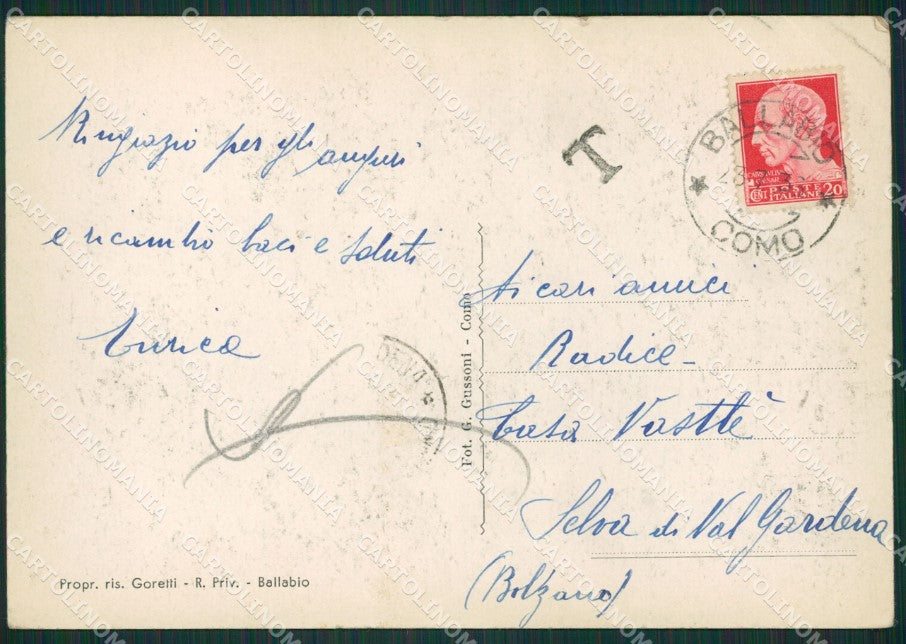 Ringrazio per gli auguri
e ricambio baci e saluti
Enrica
Propr. ris. Goretti - R. Priv. - Ballabio
Fot. G. Gussoni - Como
T
BALLABIO
COMO
CENT POSTE ITALIANE 20
Ai cari amici
Radice -
Casa Vastlè
Selva di Val Gardena
(Bolzano)
CARTOLINOMANIA